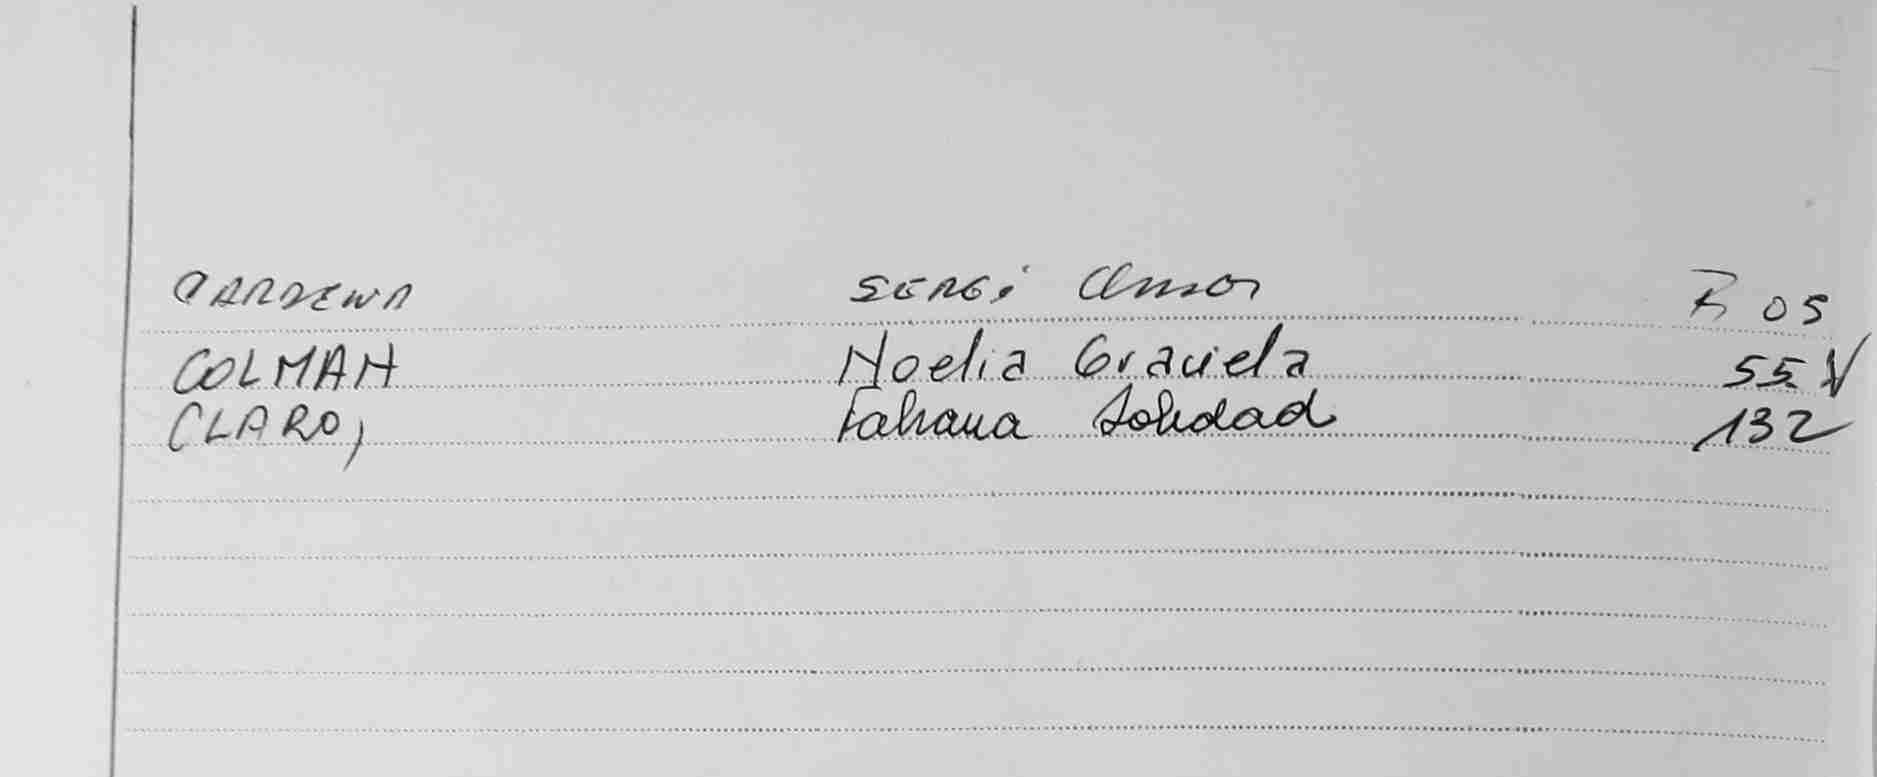 CARDENA SERGI R 05
COLMAN Noelia Graciela 55 V
CLARO, Fabiana Soledad 132